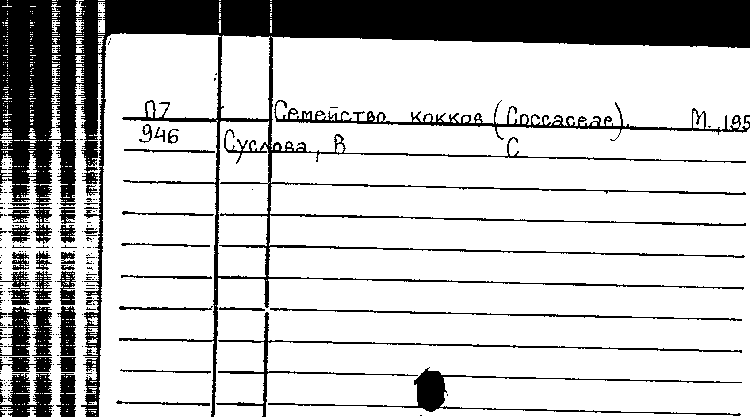 П7 Семейство кокков (Coccaceae). М., 195
946 Суслова, В С